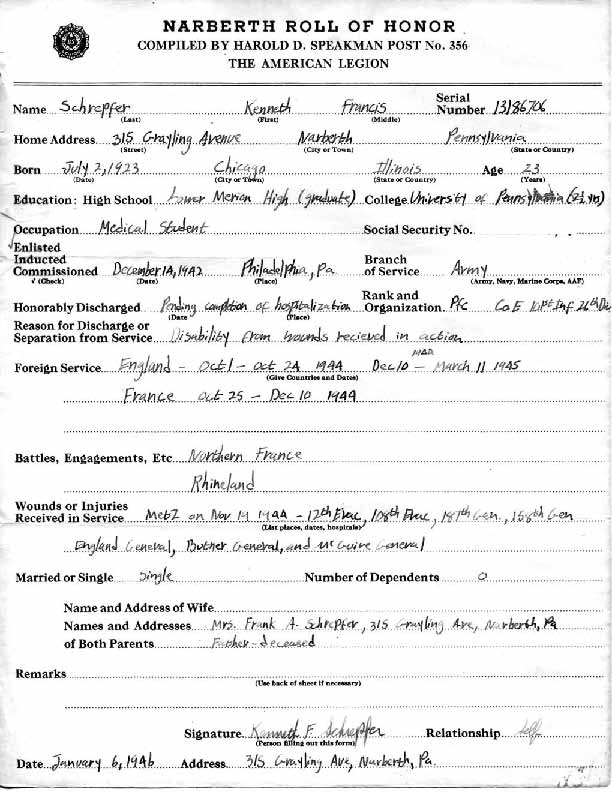 NARBERTH ROLL OF HONOR
COMPILED BY HAROLD D. SPEAKMAN POST No. 356
THE AMERICAN LEGION
Name Schrepfer Kenneth Francis Serial Number 13186706
(Last) (First) (Middle)
Home Address 315 Grayling Avenue Narberth Pennsylvania
(Street) (City or Town) (State or Country)
Born July 2, 1923 Chicago Illinois Age 23
(Date) (City or Town) (State or Country) (Years)
Education: High School Lower Merion High (graduate) College University of Pennsylvania (2½ yrs)
Occupation Medical Student Social Security No.
√ Enlisted
Inducted
Commissioned December 14, 1942 Philadelphia, Pa Branch of Service Army
√ (Check) (Date) (Place) (Army, Navy, Marine Corps, AAF)
Honorably Discharged Pending completion of hospitalization Rank and Organization Pfc Co E 101st Inf 26th Div
(Date) (Place)
Reason for Discharge or
Separation from Service Disability from wounds recieved in action
Foreign Service England - Oct 1 - Oct 24 1944 Dec 10 - March 11 1945
(Give Countries and Dates)
France Oct 25 - Dec 10 1944
Battles, Engagements, Etc Northern France
Rhineland
Wounds or Injuries
Received in Service Metz on Nov 19 1944 - 12th Evac, 108th Evac, 187th Gen, 158th Gen
(List places, dates, hospitals)
England General, Butner General, and McGuire General
Married or Single Single Number of Dependents 0
Name and Address of Wife
Names and Addresses Mrs. Frank A. Schrepfer, 315 Grayling Ave, Narberth, Pa
of Both Parents Father - deceased
Remarks
(Use back of sheet if necessary)
Signature Kenneth F. Schrepfer Relationship Self
(Person filling out this form)
Date January 6, 1946 Address 315 Grayling Ave, Narberth, Pa.